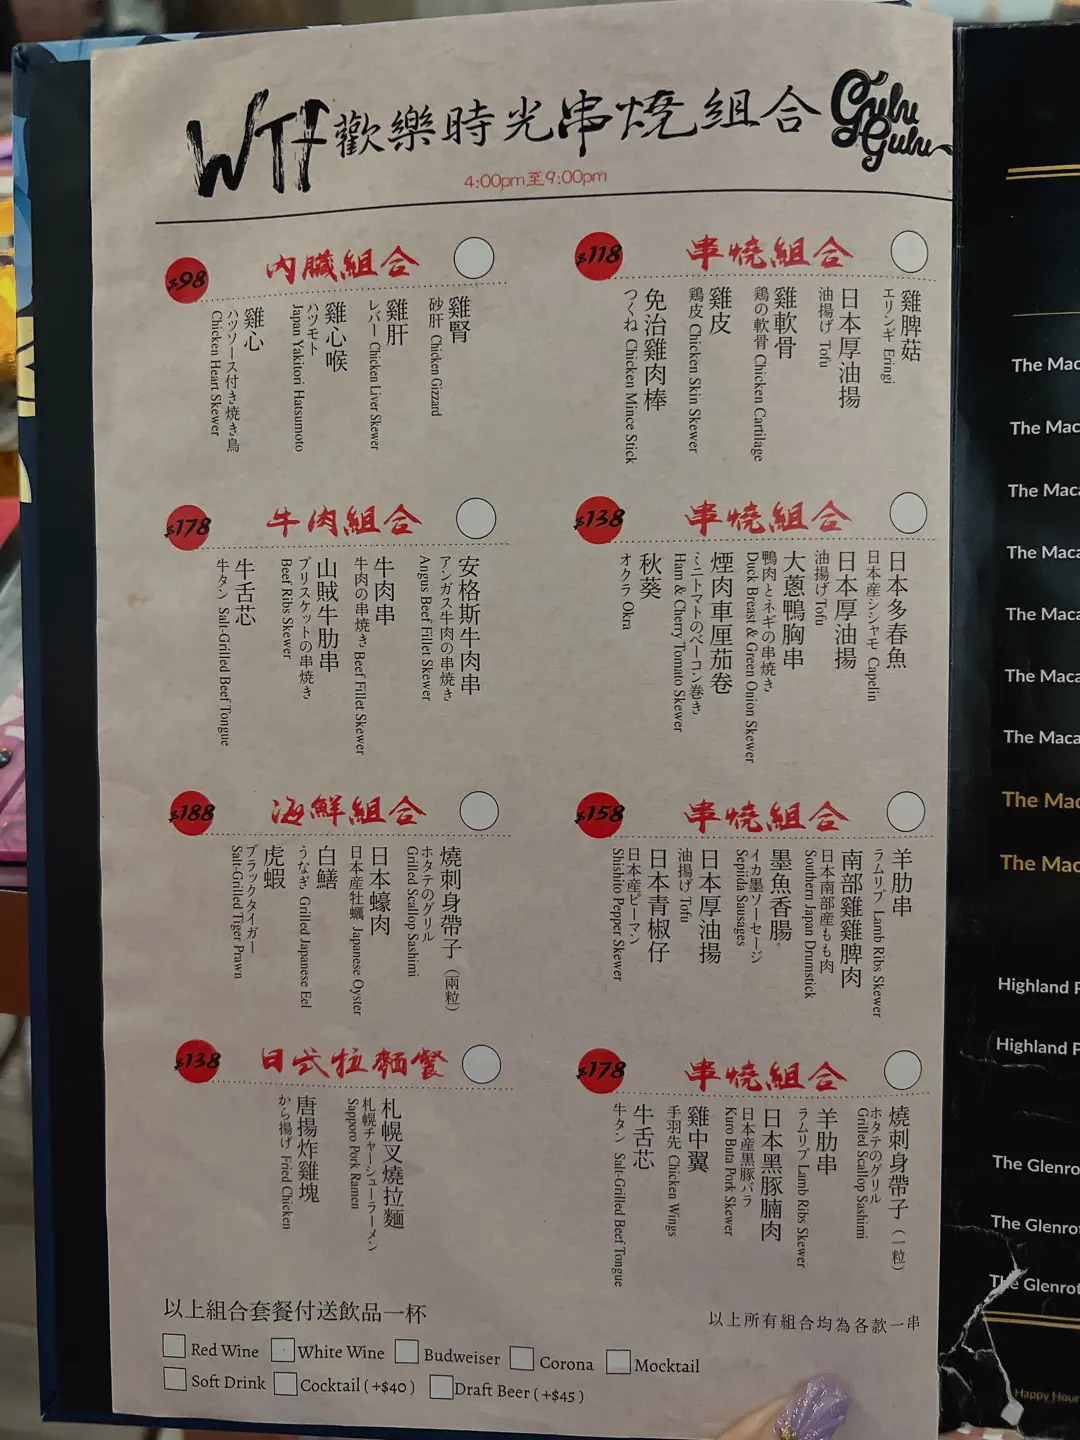 WTF 歡樂時光串燒組合
Gulu Gulu
4:00pm至9:00pm
$98 內臟組合
雞腎
砂肝 Chicken Gizzard
雞肝
レバー Chicken Liver Skewer
雞心喉
ハツモト
Japan Yakitori Hatsumoto
雞心
ハツソース付き焼き鳥
Chicken Heart Skewer
$118 串燒組合
雞脾菇
エリンギ Eringi
日本厚油揚
油揚げ Tofu
雞軟骨
鶏の軟骨 Chicken Cartilage
雞皮
鶏皮 Chicken Skin Skewer
免治雞肉棒
つくね Chicken Mince Stick
$178 牛肉組合
安格斯牛肉串
アンガス牛肉の串焼き
Angus Beef Fillet Skewer
牛肉串
牛肉の串焼き Beef Fillet Skewer
山賊牛肋串
ブリスケットの串焼き
Beef Ribs Skewer
牛舌芯
牛タン Salt-Grilled Beef Tongue
$138 串燒組合
日本多春魚
日本産シシャモ Capelin
日本厚油揚
油揚げ Tofu
大蔥鴨胸串
鴨肉とネギの串焼き
Duck Breast & Green Onion Skewer
煙肉車厘茄卷
ミニトマトのベーコン巻き
Ham & Cherry Tomato Skewer
秋葵
オクラ Okra
$188 海鮮組合
燒刺身帶子（兩粒）
ホタテのグリル
Grilled Scallop Sashimi
日本蠔肉
日本産牡蠣 Japanese Oyster
白鱔
うなぎ Grilled Japanese Eel
虎蝦
ブラックタイガー
Salt-Grilled Tiger Prawn
$158 串燒組合
羊肋串
ラムリブ Lamb Ribs Skewer
南部雞雞脾肉
日本南部産もも肉
Southern Japan Drumstick
墨魚香腸
イカ墨ソーセージ
Sepiida Sausages
日本厚油揚
油揚げ Tofu
日本青椒仔
日本産ピーマン
Shishito Pepper Skewer
$138 日式拉麵餐
札幌叉燒拉麵
札幌チャーシューラーメン
Sapporo Pork Ramen
唐揚炸雞塊
から揚げ Fried Chicken
$178 串燒組合
燒刺身帶子（一粒）
ホタテのグリル
Grilled Scallop Sashimi
羊肋串
ラムリブ Lamb Ribs Skewer
日本黑豚腩肉
日本産黒豚バラ
Kuro Buta Pork Skewer
雞中翼
手羽先 Chicken Wings
牛舌芯
牛タン Salt-Grilled Beef Tongue
以上組合套餐付送飲品一杯
以上所有組合均為各款一串
Red Wine White Wine Budweiser Corona Mocktail
Soft Drink Cocktail ( +$40 ) Draft Beer ( +$45 )
The Mac
The Mac
The Maca
The Maca
The Maca
The Maca
The Maca
The Mac
The Mac
Highland P
Highland P
The Glenro
The Glenro
The Glenrot
Happy Hour